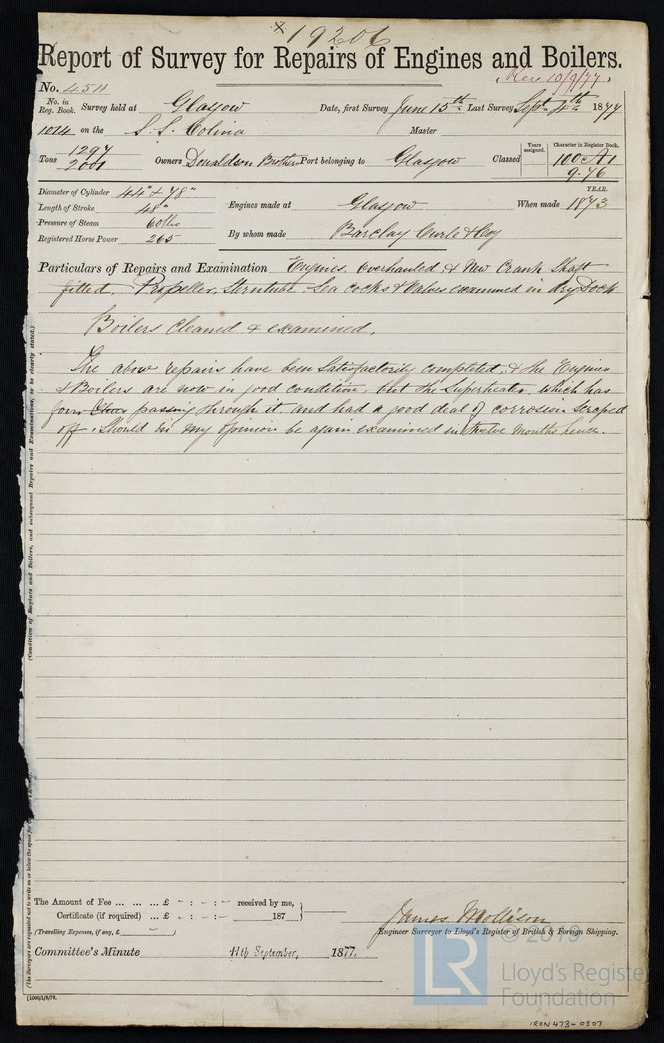 * 19206
Report of Survey for Repairs of Engines and Boilers.
Rec 10/9/77
No. 4511
No. in Reg. Book. Survey held at Glasgow Date, first Survey June 15th Last Survey Sept. 4th 1877
1014 on the S.S. Colina Master
Tons 1297 2001 Owners Donaldson Brothers Port belonging to Glasgow Classed Years assigned. Character in Register Book. 100 A1 9.76
Diameter of Cylinder 44" & 78"
Length of Stroke 48"
Pressure of Steam 60 lbs
Registered Horse Power 265
Engines made at Glasgow When made YEAR. 1873
By whom made Barclay Curle & Coy
Particulars of Repairs and Examination Engines. Overhauled & New Crank Shaft
fitted. Propeller, Sterntube, Sea cocks & Valves examined in Dry Dock
Boilers Cleaned & examined.
The above repairs have been Satisfactorily completed, & the Engines
& Boilers are now in good condition, but the Superheater, which has
passing through it and had a good deal of corrosion Scraped
off, Should in my opinion be again examined in twelve months hence.
(Condition of Engines and Boilers, and subsequent Repairs and Examinations, to be clearly stated.)
The Amount of Fee ... ... ... £ - : - : - received by me,
Certificate (if required) ... £ - : - : - 187
(Travelling Expenses, if any, £ - )
James Mollison
Engineer Surveyor to Lloyd's Register of British & Foreign Shipping.
Committee's Minute 11th September, 1877.
© 2019
LR Lloyd's Register
Foundation
IRON 473-0507